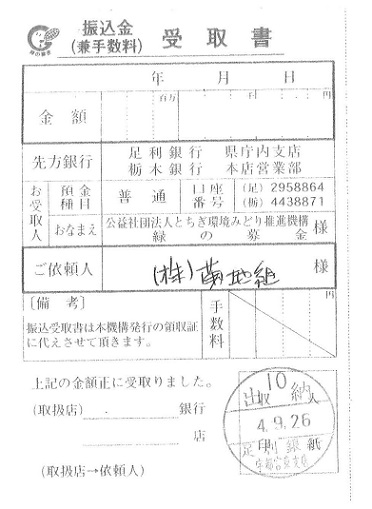 振込金
(兼手数料) 受取書
緑の募金
年 月 日
金額 百万 千 円
先方銀行 足利銀行 県庁内支店
栃木銀行 本店営業部
お受取人 預金種目 普通 口座番号 (足) 2958864
(栃) 4438871
おなまえ 公益社団法人とちぎ環境みどり推進機構
緑の募金 様
ご依頼人 (株)菊地組 様
〔備考〕 手数料 円
振込受取書は本機構発行の領収証
に代えさせて頂きます。
上記の金額正に受取りました。
(取扱店) 銀行
店
(取扱店→依頼人)
10
出納
4.9.26
足利銀
宇都宮東支店